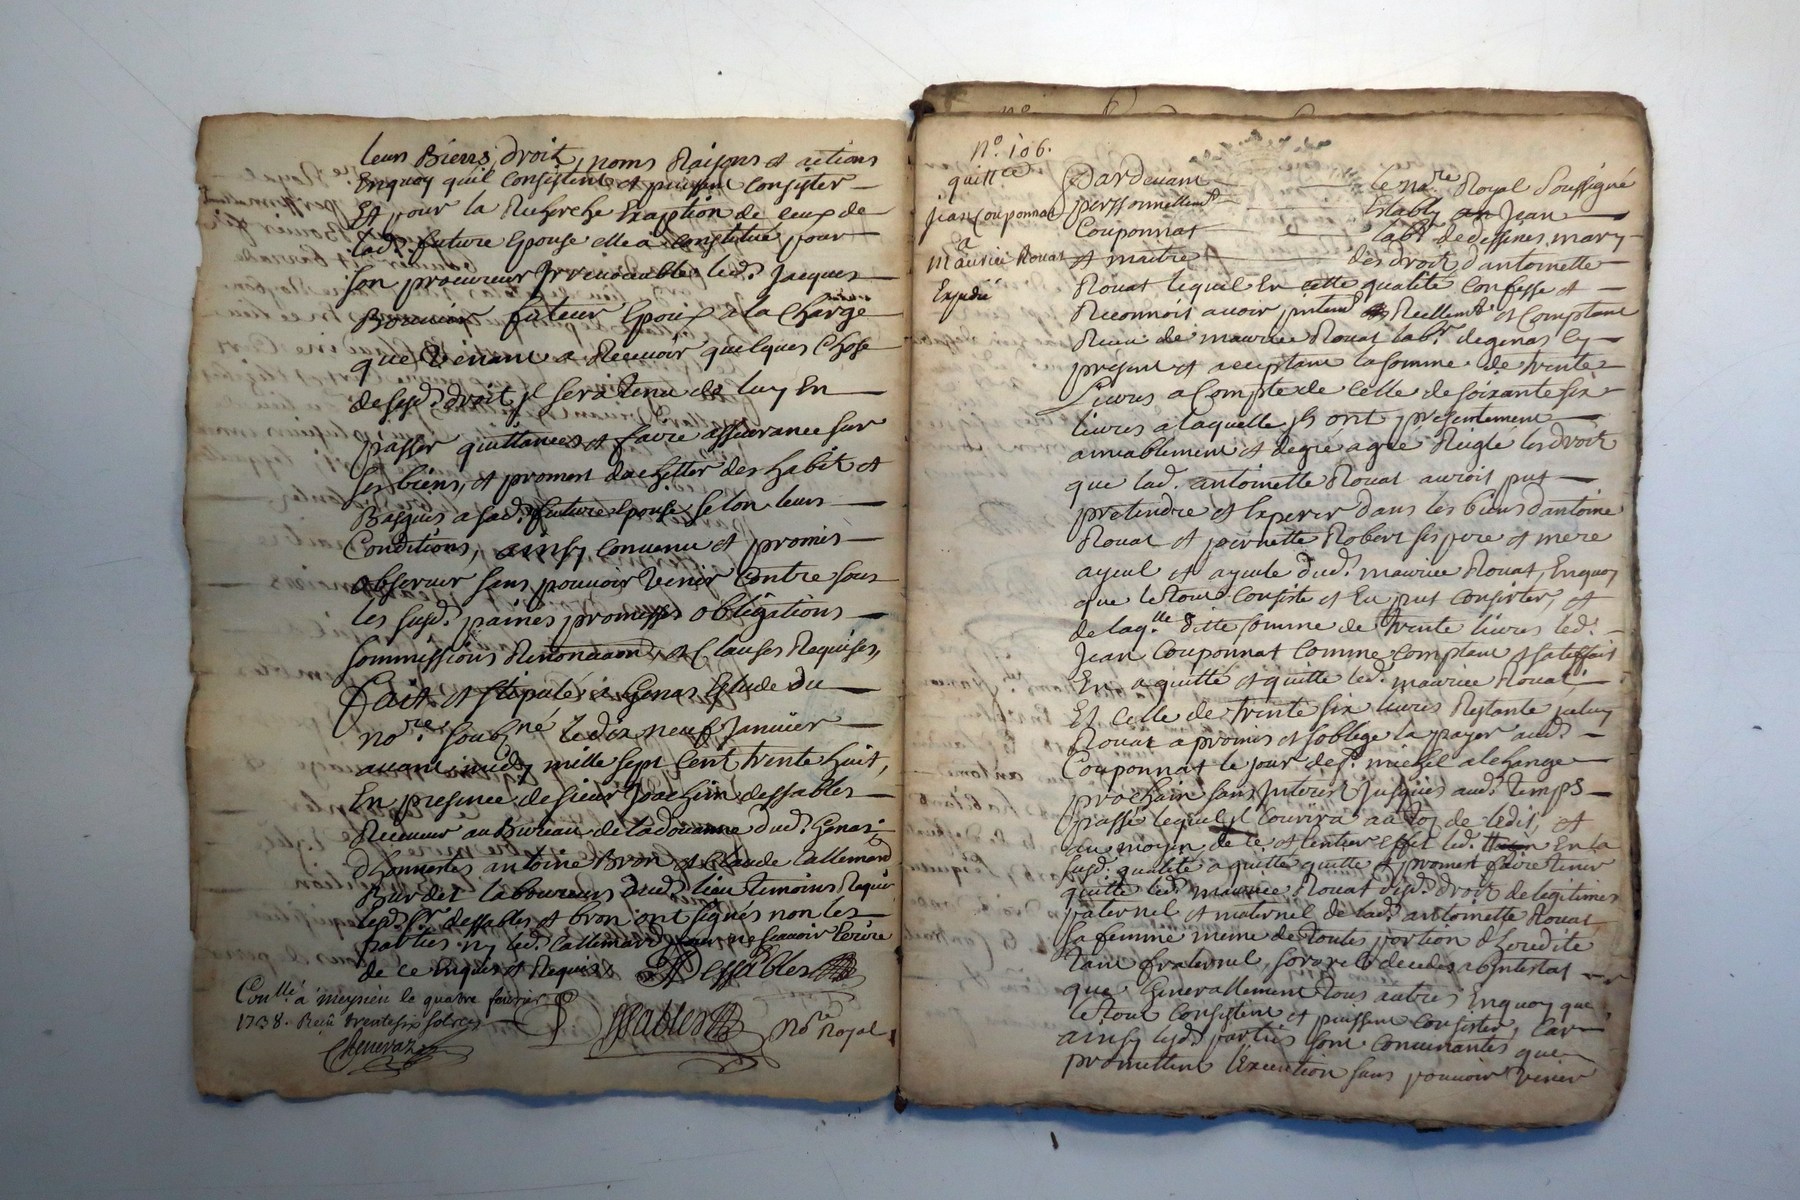 leurs Biens, droit, noms Raisons et actions
Enquoy quil consistent et puissent consister
Et pour la Recherche Exaption de ceux de
lad. future Epouse elle a constitué pour
son procureur Irrevocable led. Jacques
futeur Epoux a la Charge
que Venant a Recevoir quelques Chose
desesd. droit jl sera tenu de luy En
passer quittances et faire assurance sur
ses biens, et promest dachetter des habit et
Bagues a sad. future Epouse selon leurs
Conditions, ainsy convenu et promis
observer sans pouvoir venir Contre sous
les susd. paines promesses obligations
sommissions Renonciaon, et Clauses Requises,
Fait et stipulé a Genas Estude du
no.re soubné le dix neuf Janvier
avant midy mille sept Cent trente huit,
En presence de sieur Joachim dessables
Receveur au Bureau de la douanne dud. Genas
d'honnestes antoine Bron, et Claude Callemard
Burdet laboureurs dud. lieu temoins Requis
lesd. sr. dessables et bron ont signés non les
parties ny led. Callemard pour ne scavoir Ecrire
de ce Enquis et Requis. Dessables
Conllé a meysieu le quatre fevrier
1738. Reçu trente six sols
Dessables No.re Royal
N.o 106.
quittce
Jean Couponnat
a
Maurice Rouat
Expedié
Pardevant le no.re Royal soussigné
personnellemt. Estably Jean
Couponnat labr. de dessines mary
et maitre des droit d'antoinette
Rouat lequel En cette qualité confesse et
Reconnoit avoir Reellemt. et Comptant
Receu de maurice Rouat labr. de genas Cy
present et acceptant la somme de trente
Livres a Compte de Celle de soixante six
livres a laquelle jls ont presentement
amiablement et de gré a gré Reigle les droit
que lad. antoinette Rouat auroit put
pretendre et Esperer dans les biens d'antoine
Rouat et pierrette Robert ses pere et mere
ayeul et ayeule dud. maurice Rouat, Enquoy
que le tout Consiste et Eu put Consister, et
de laqlle ditte somme de trente livres led.
Jean Couponnat Comme Comptant et satisfait
En a quitté et quitte led. maurice Rouat
Et Celle de trente six livres Restante jceluy
Rouat a promis et s'oblege la payer aud.
Couponnat le jour de st. michel archange
prochain sans Interest jusques aud. temps
passe lequel jl Courira au de ledit, et
au moyen de ce et l'entier Effet led. En la
susd. qualité a quitté quitte et promest faire tenir
quitte led. maurice Rouat desd. droit de legitimes
paternel et maternel de lad. antoinette Rouat
sa femme meme de toutes portion d'heredité
tant fraternel, sororele decedes abintestat
que Generallement tous autres Enquoy que
le tout Consistent et puissent Consister, Car
ainsy lesd. parties sont Convenantes que
promettent l'Execution sans pouvoir venir